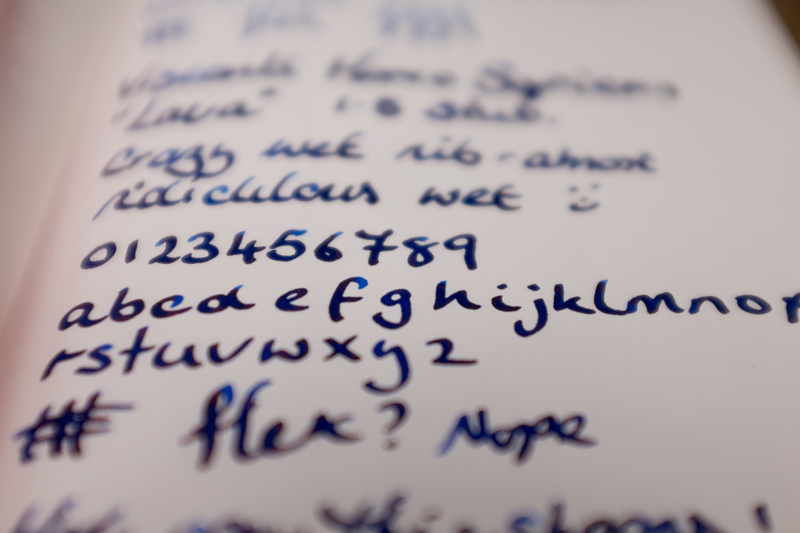 Visconti Homo Sapiens
"Lava" 1.5 stub.
Crazy wet nib - almost
ridiculous wet :)
0123456789
abcdefghijklmno
rstuvwxyz
# flex? Nope